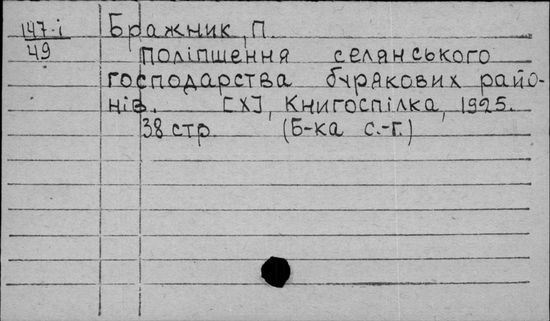 147-і Бражник, П.
49 Поліпшення селянського
господарства бурякових райо-
нів. [Х], Книгоспілка, 1925.
38 стр. (Б-ка с.-г.)